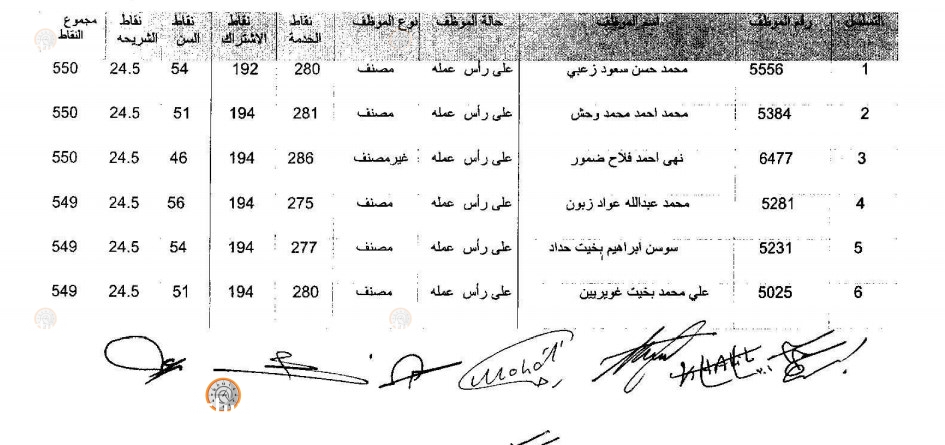 التسلسل رقم الموظف اسم الموظف حالة الموظف نوع الموظف نقاط الخدمة نقاط الاشتراك نقاط السن نقاط الشريحه مجموع النقاط
1 5556 محمد حسن سعود زعبي على رأس عمله مصنف 280 192 54 24.5 550
2 5384 محمد احمد محمد وحش على رأس عمله مصنف 281 194 51 24.5 550
3 6477 نهى احمد فلاح ضمور على رأس عمله غير مصنف 286 194 46 24.5 550
4 5281 محمد عبدالله عواد زبون على رأس عمله مصنف 275 194 56 24.5 549
5 5231 سوسن ابراهيم بخيت حداد على رأس عمله مصنف 277 194 54 24.5 549
6 5025 علي محمد بخيت غويريين على رأس عمله مصنف 280 194 51 24.5 549